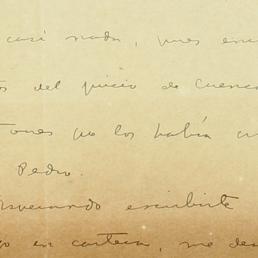 casi nada, pues en
del juicio de Cuenca
no los había
Pedro.
esperando escribirte
en cartera, me